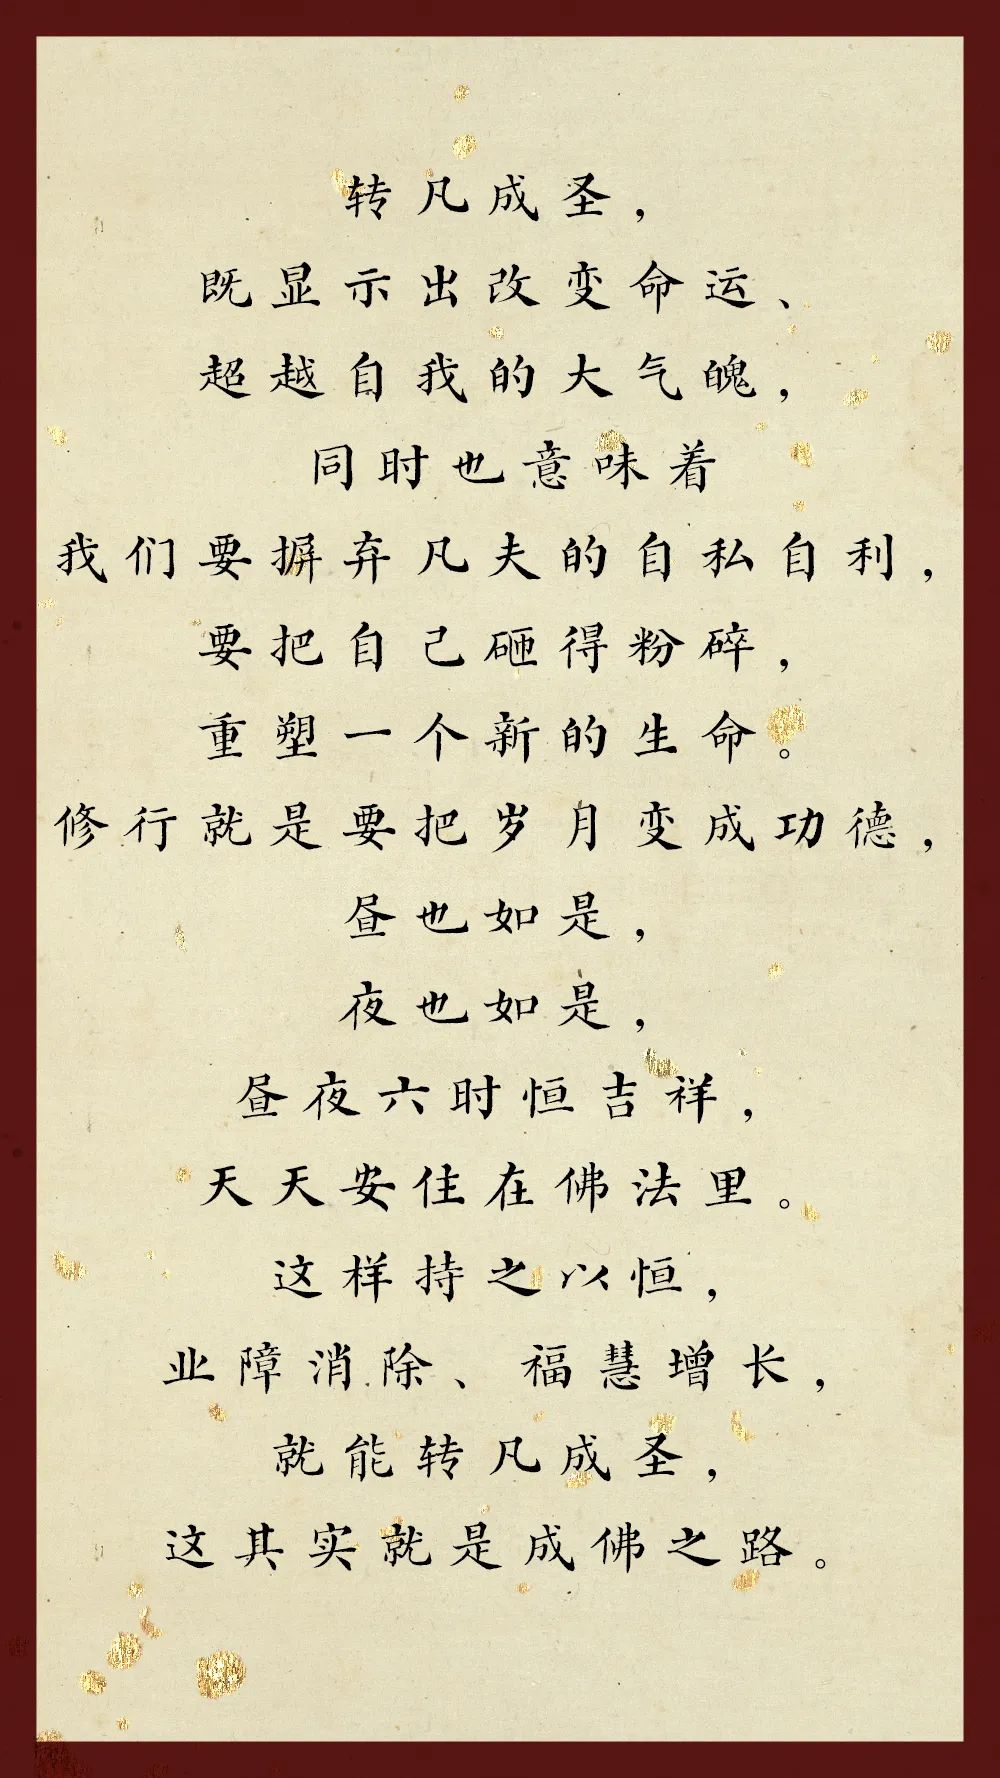 转凡成圣，
既显示出改变命运、
超越自我的大气魄，
同时也意味着
我们要摒弃凡夫的自私自利，
要把自己砸得粉碎，
重塑一个新的生命。
修行就是要把岁月变成功德，
昼也如是，
夜也如是，
昼夜六时恒吉祥，
天天安住在佛法里。
这样持之以恒，
业障消除、福慧增长，
就能转凡成圣，
这其实就是成佛之路。